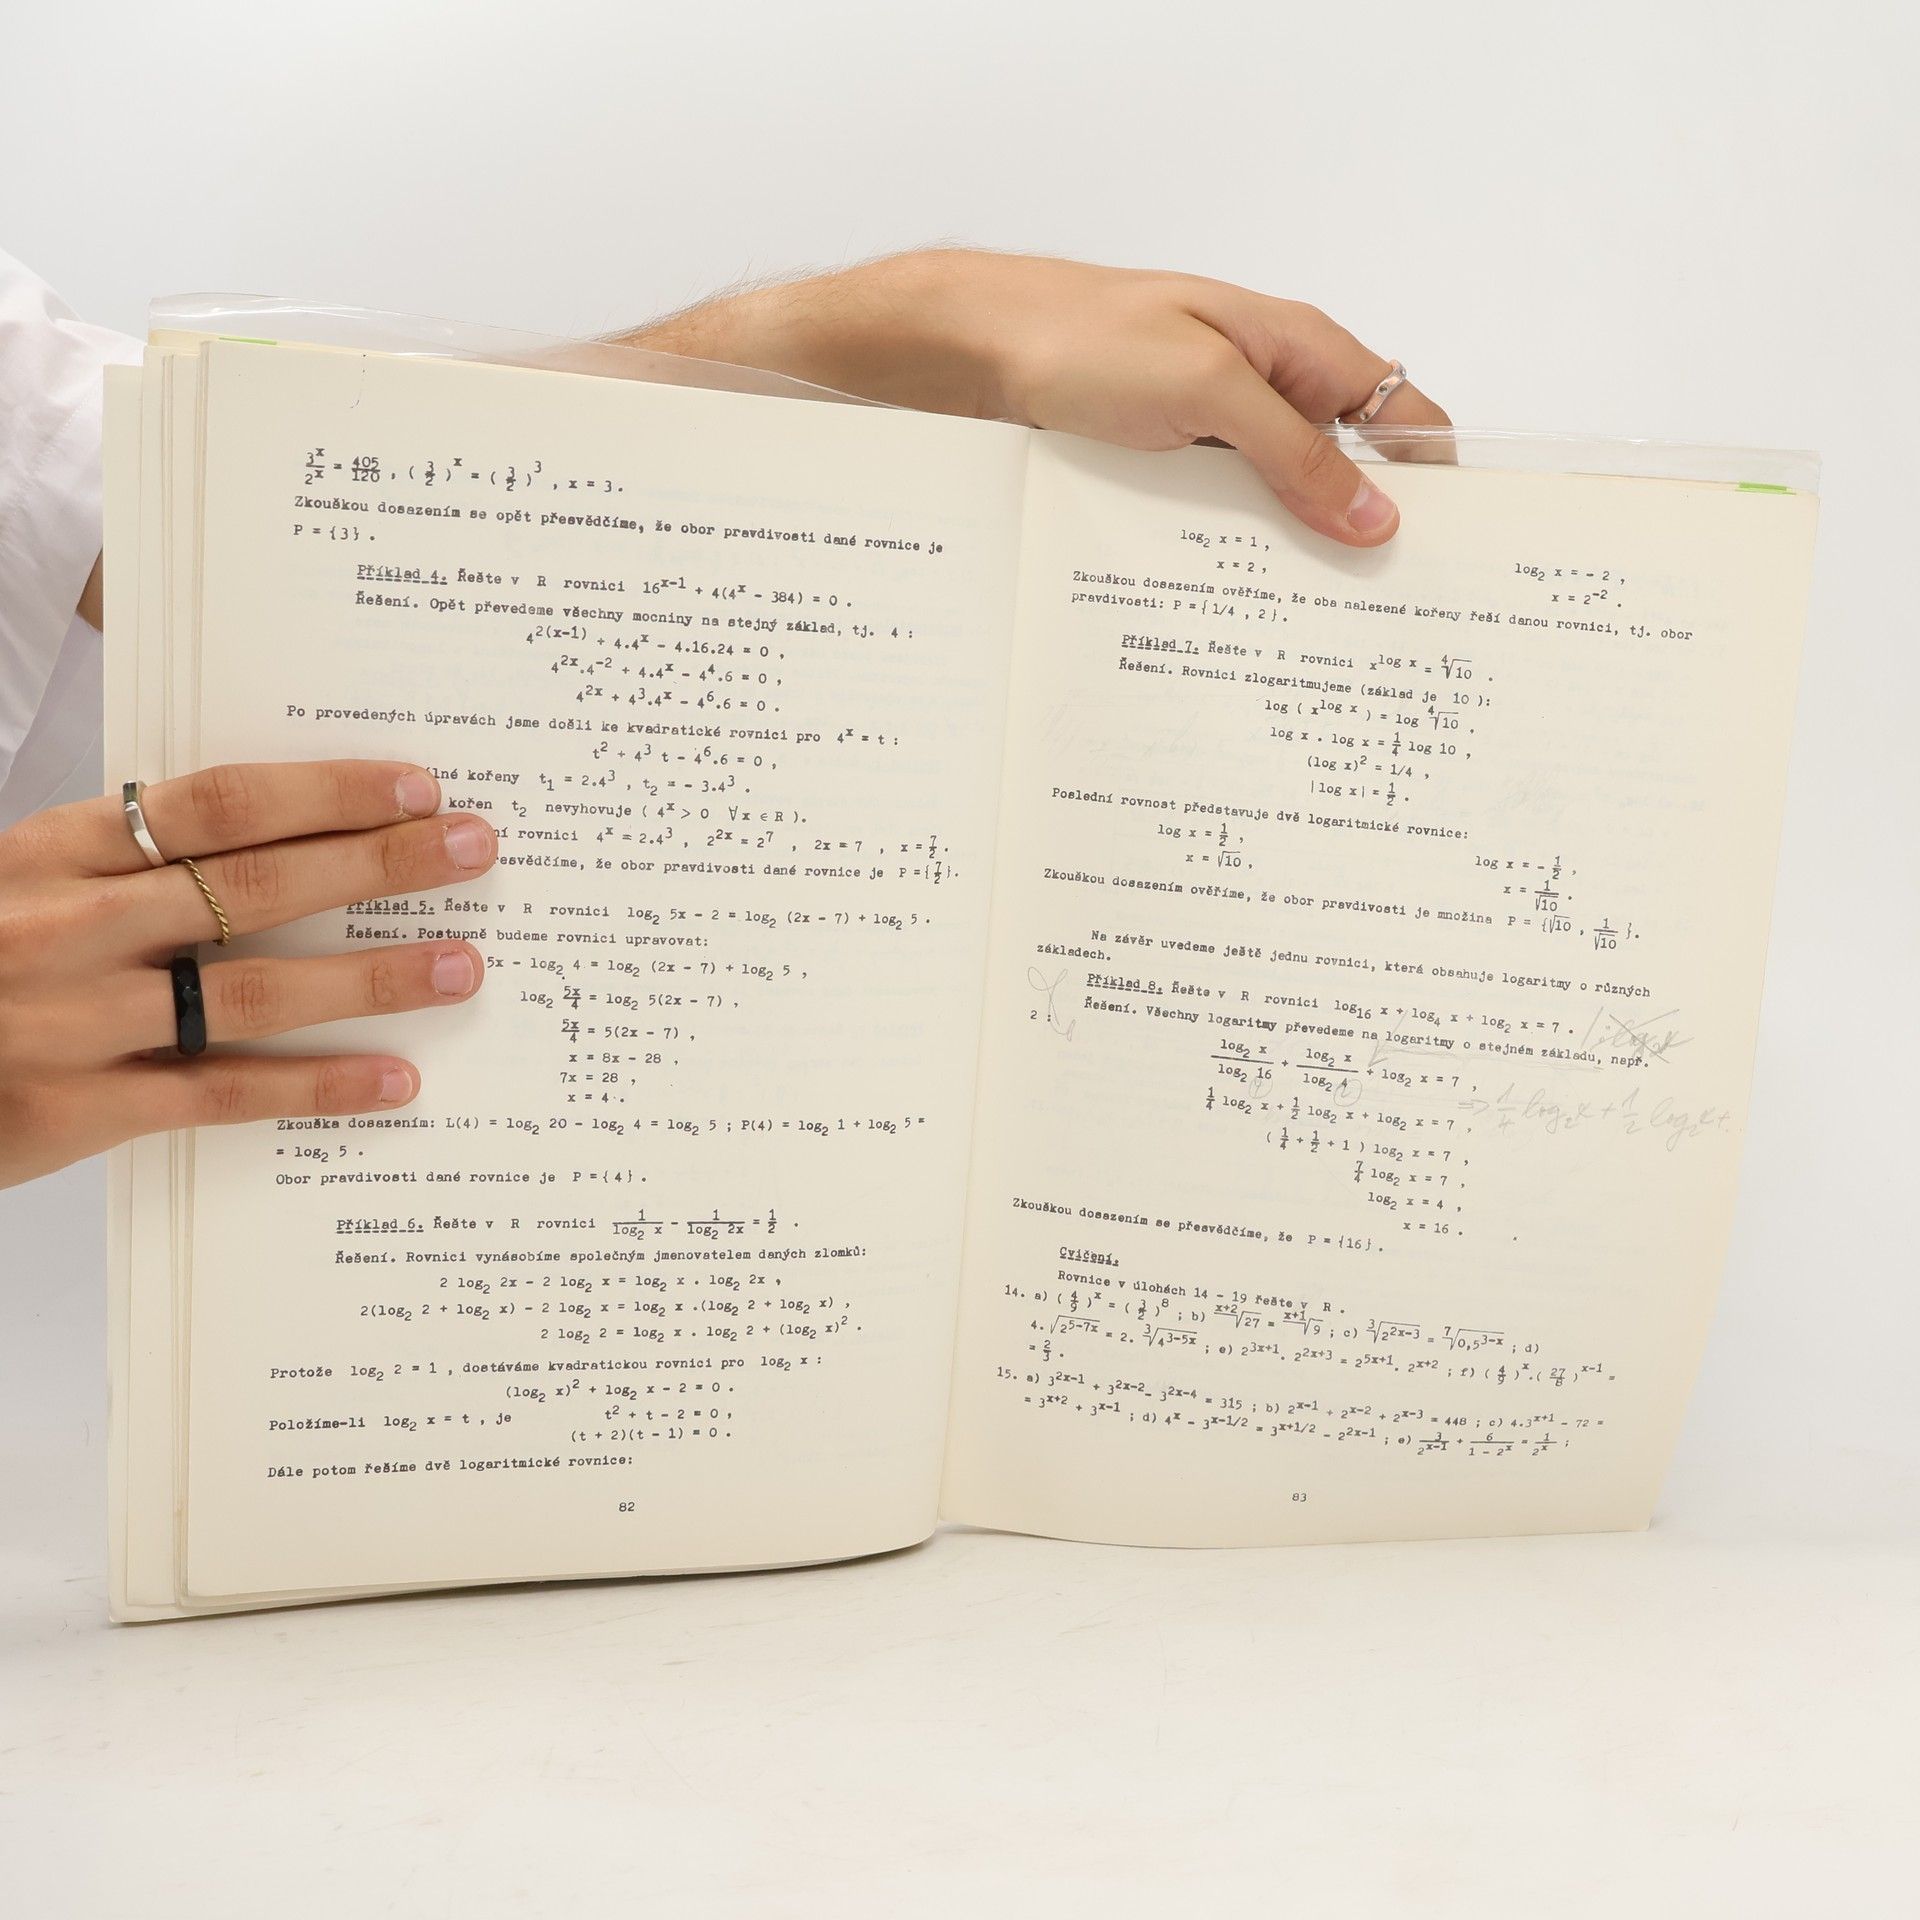 3^x/2^x = 405/120 , ( 3/2 )^x = ( 3/2 )^3 , x = 3 .
Zkouškou dosazením se opět přesvědčíme, že obor pravdivosti dané rovnice je
P = {3} .
Příklad 4. Řešte v R rovnici 16^(x-1) + 4(4^x - 384) = 0 .
Řešení. Opět převedeme všechny mocniny na stejný základ, tj. 4 :
4^(2(x-1)) + 4.4^x - 4.16.24 = 0 ,
4^(2x).4^(-2) + 4.4^x - 4^4.6 = 0 ,
4^(2x) + 4^3.4^x - 4^6.6 = 0 .
Po provedených úpravách jsme došli ke kvadratické rovnici pro 4^x = t :
t^2 + 4^3 t - 4^6.6 = 0 ,
kořeny t₁ = 2.4^3 , t₂ = - 3.4^3 .
kořen t₂ nevyhovuje ( 4^x > 0 ∀x ∈ R ).
rovnici 4^x = 2.4^3 , 2^(2x) = 2^7 , 2x = 7 , x = 7/2 .
že obor pravdivosti dané rovnice je P = {7/2}.
Příklad 5. Řešte v R rovnici log₂ 5x - 2 = log₂ (2x - 7) + log₂ 5 .
Řešení. Postupně budeme rovnici upravovat:
5x - log₂ 4 = log₂ (2x - 7) + log₂ 5 ,
log₂ 5x/4 = log₂ 5(2x - 7) ,
5x/4 = 5(2x - 7) ,
x = 8x - 28 ,
7x = 28 ,
x = 4 .
Zkouška dosazením: L(4) = log₂ 20 - log₂ 4 = log₂ 5 ; P(4) = log₂ 1 + log₂ 5 =
= log₂ 5 .
Obor pravdivosti dané rovnice je P = {4} .
Příklad 6. Řešte v R rovnici 1/(log₂ x) - 1/(log₂ 2x) = 1/2 .
Řešení. Rovnici vynásobíme společným jmenovatelem daných zlomků:
2 log₂ 2x - 2 log₂ x = log₂ x . log₂ 2x ,
2(log₂ 2 + log₂ x) - 2 log₂ x = log₂ x .(log₂ 2 + log₂ x) ,
2 log₂ 2 = log₂ x . log₂ 2 + (log₂ x)^2 .
Protože log₂ 2 = 1 , dostáváme kvadratickou rovnici pro log₂ x :
(log₂ x)^2 + log₂ x - 2 = 0 .
Položíme-li log₂ x = t , je t^2 + t - 2 = 0 ,
(t + 2)(t - 1) = 0 .
Dále potom řešíme dvě logaritmické rovnice:
82
log₂ x = 1 , log₂ x = - 2 ,
x = 2 , x = 2^(-2) .
Zkouškou dosazením ověříme, že oba nalezené kořeny řeší danou rovnici, tj. obor
pravdivosti: P = { 1/4 , 2 } .
Příklad 7. Řešte v R rovnici x^(log x) = ⁴√10 .
Řešení. Rovnici zlogaritmujeme (základ je 10 ):
log ( x^(log x) ) = log ⁴√10 ,
log x . log x = 1/4 log 10 ,
(log x)^2 = 1/4 ,
|log x| = 1/2 .
Poslední rovnost představuje dvě logaritmické rovnice:
log x = 1/2 , log x = - 1/2 ,
x = √10 , x = 1/√10 .
Zkouškou dosazením ověříme, že obor pravdivosti je množina P = {√10 , 1/√10 }.
Na závěr uvedeme ještě jednu rovnici, která obsahuje logaritmy o různých
základech.
Příklad 8. Řešte v R rovnici log₁₆ x + log₄ x + log₂ x = 7 .
Řešení. Všechny logaritmy převedeme na logaritmy o stejném základu, např.
2 :
(log₂ x)/(log₂ 16) + (log₂ x)/(log₂ 4) + log₂ x = 7 ,
1/4 log₂ x + 1/2 log₂ x + log₂ x = 7 , => 1/4 log₂x + 1/2 log₂x+
( 1/4 + 1/2 + 1 ) log₂ x = 7 ,
7/4 log₂ x = 7 ,
log₂ x = 4 ,
x = 16 .
Zkouškou dosazením se přesvědčíme, že P = {16} .
Cvičení.
Rovnice v úlohách 14 - 19 řešte v R .
14. a) ( 4/9 )^x = ( 3/2 )^8 ; b) ^(x+2)√27 = ^(x+1)√9 ; c) ³√2^(2x-3) = ⁷√0,5^(3-x) ; d)
4.√2^(5-7x) = 2. ³√4^(3-5x) ; e) 2^(3x+1). 2^(2x+3) = 2^(5x+1). 2^(x+2) ; f) ( 4/9 )^x.( 27/8 )^(x-1) =
= 2/3 .
15. a) 3^(2x-1) + 3^(2x-2) - 3^(2x-4) = 315 ; b) 2^(x-1) + 2^(x-2) + 2^(x-3) = 448 ; c) 4.3^(x+1) - 72 =
= 3^(x+2) + 3^(x-1) ; d) 4^x - 3^(x-1/2) = 3^(x+1/2) - 2^(2x-1) ; e) 3/(2^(x-1)) + 6/(1 - 2^x) = 1/(2^x) ;
83